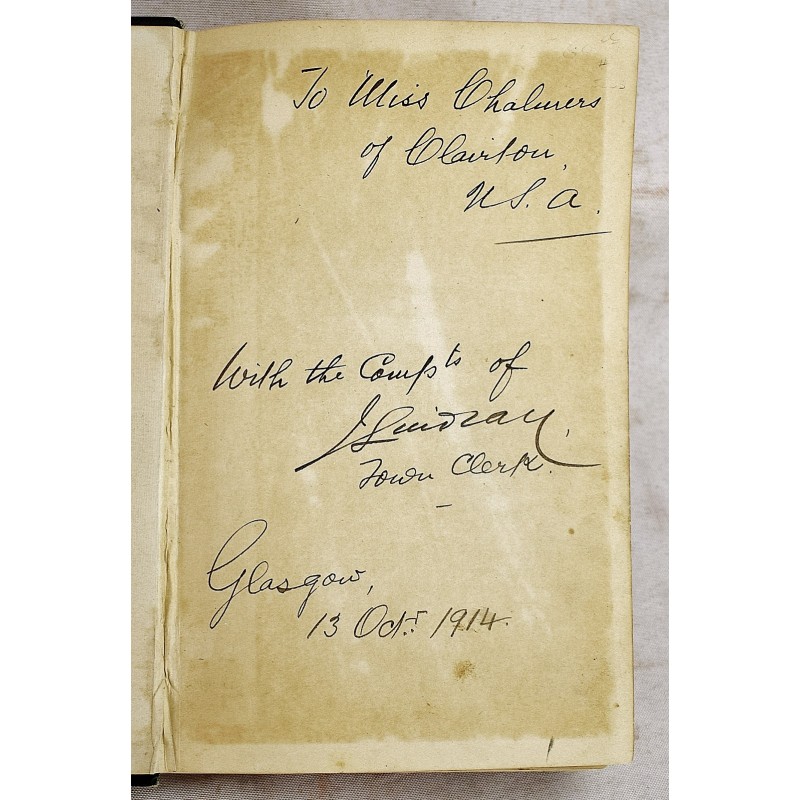 To Miss Chalmers
of Clairton,
U.S.A.
With the Compts of
J Lindsay,
Town Clerk.
Glasgow,
13 Octr. 1914.